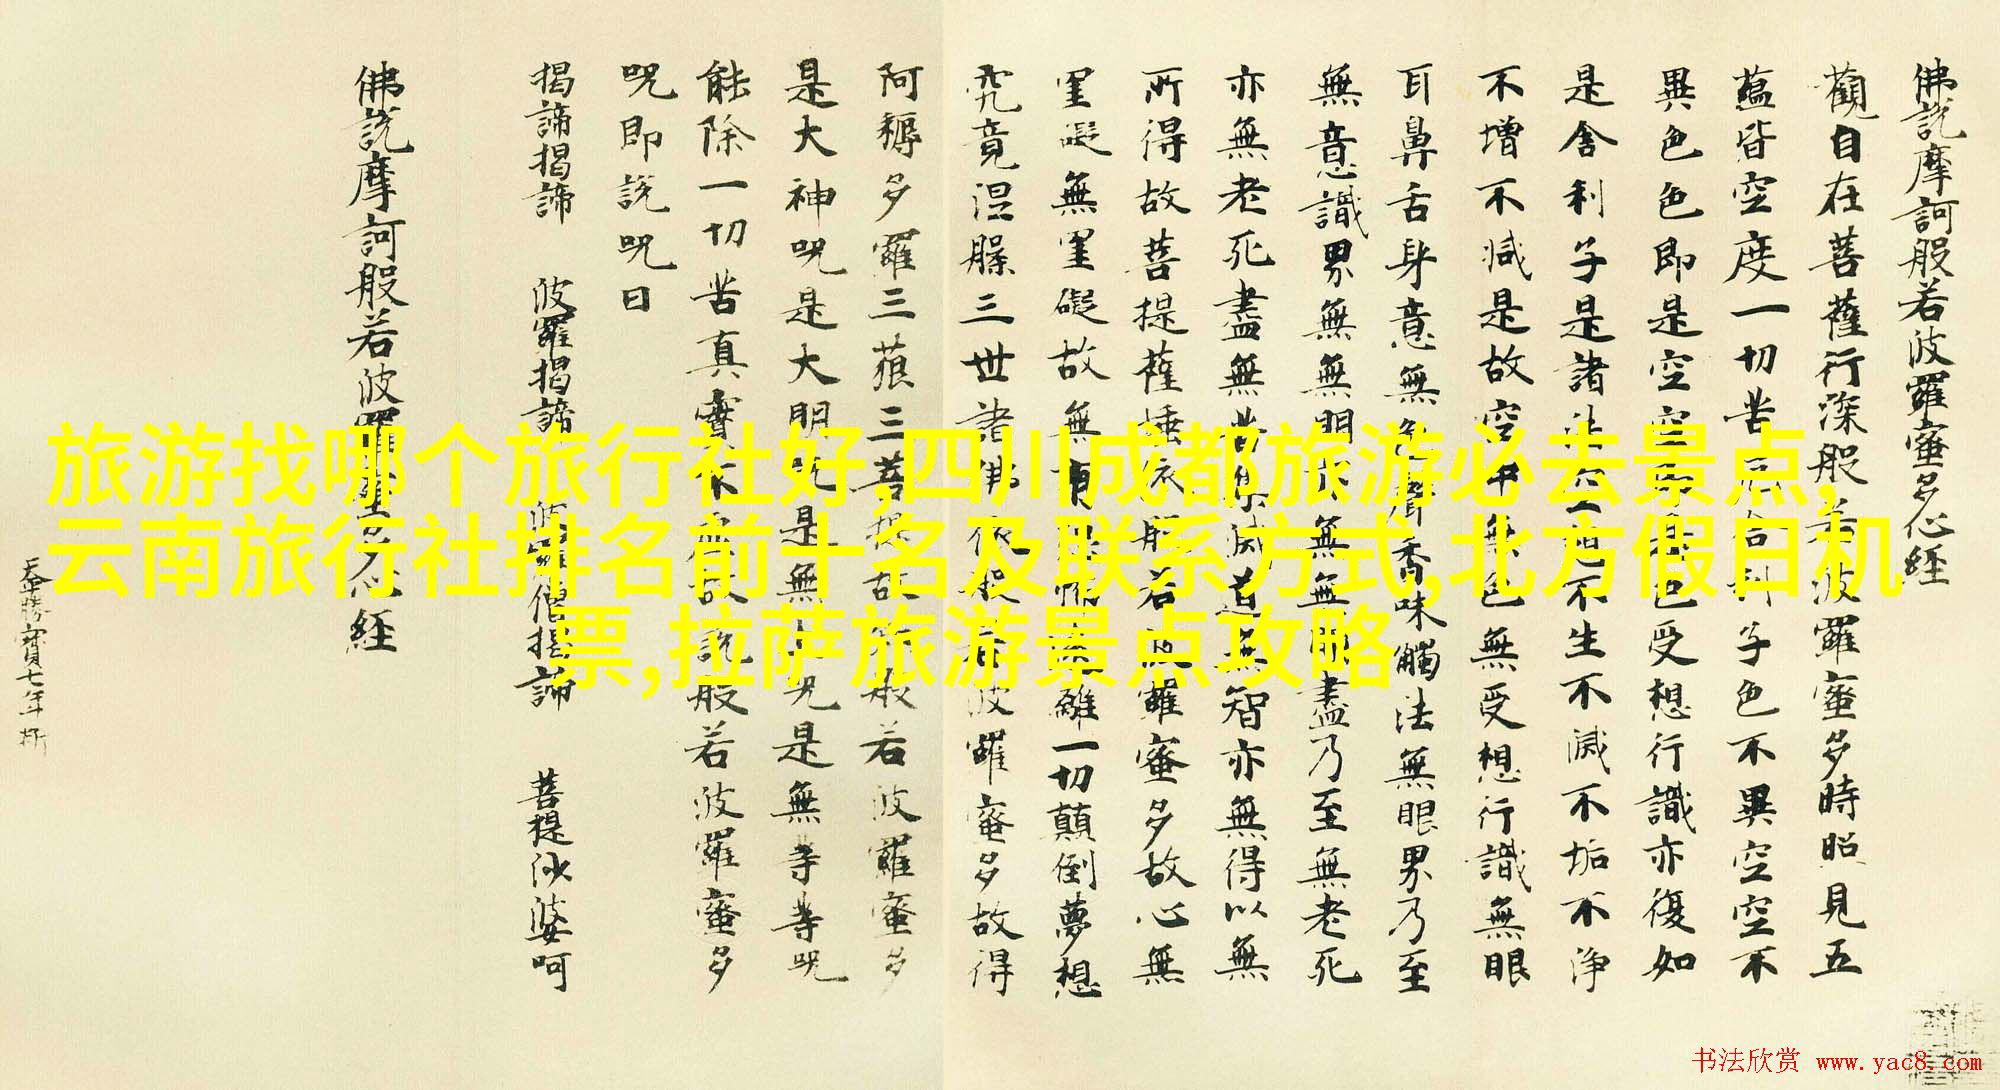 佛說摩訶般若波羅蜜多心經
觀自在菩薩行深般若波羅蜜多時照見五
蘊皆空度一切苦厄舍利子色不異空空不
異色色即是空空即是色受想行識亦復如
是舍利子是諸法空相不生不滅不垢不淨
不增不減是故空中無色無受想行識無眼
耳鼻舌身意無色聲香味觸法無眼界乃至
無意識界無無明亦無無明盡乃至無老死
亦無老死盡無苦集滅道無智亦無得以無
所得故菩提薩埵依般若波羅蜜多故心無
罣礙無罣礙故無有恐怖遠離一切顛倒夢想
究竟涅槃三世諸佛依般若波羅蜜多故得
阿耨多羅三藐三菩提故知般若波羅蜜多
是大神咒是大明咒是無上咒是無等等咒
能除一切苦真實不虛故說般若波羅蜜多
咒即說咒曰
揭諦揭諦 波羅揭諦 波羅僧揭諦 菩提沙婆呵
佛說摩訶般若波羅蜜多心經
天寶七年
旅游找哪个旅行社好,四川成都旅游必去景点,
云南旅行社排名前十名及联系方式,北方假日机
票,拉萨旅游景点攻略
书法欣赏 www.yac8.com